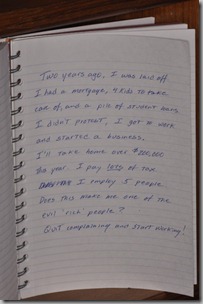 Two years ago, I was laid off
I had a mortgage, 4 kids to take
care of, and a pile of student loans
I didn't protest, I got to work
and started a business.
I'll take home over $200,000
this year. I pay less of tax
I employ 5 people
Does this make me one of the
evil 'rich people'?
Quit complaining and start working!